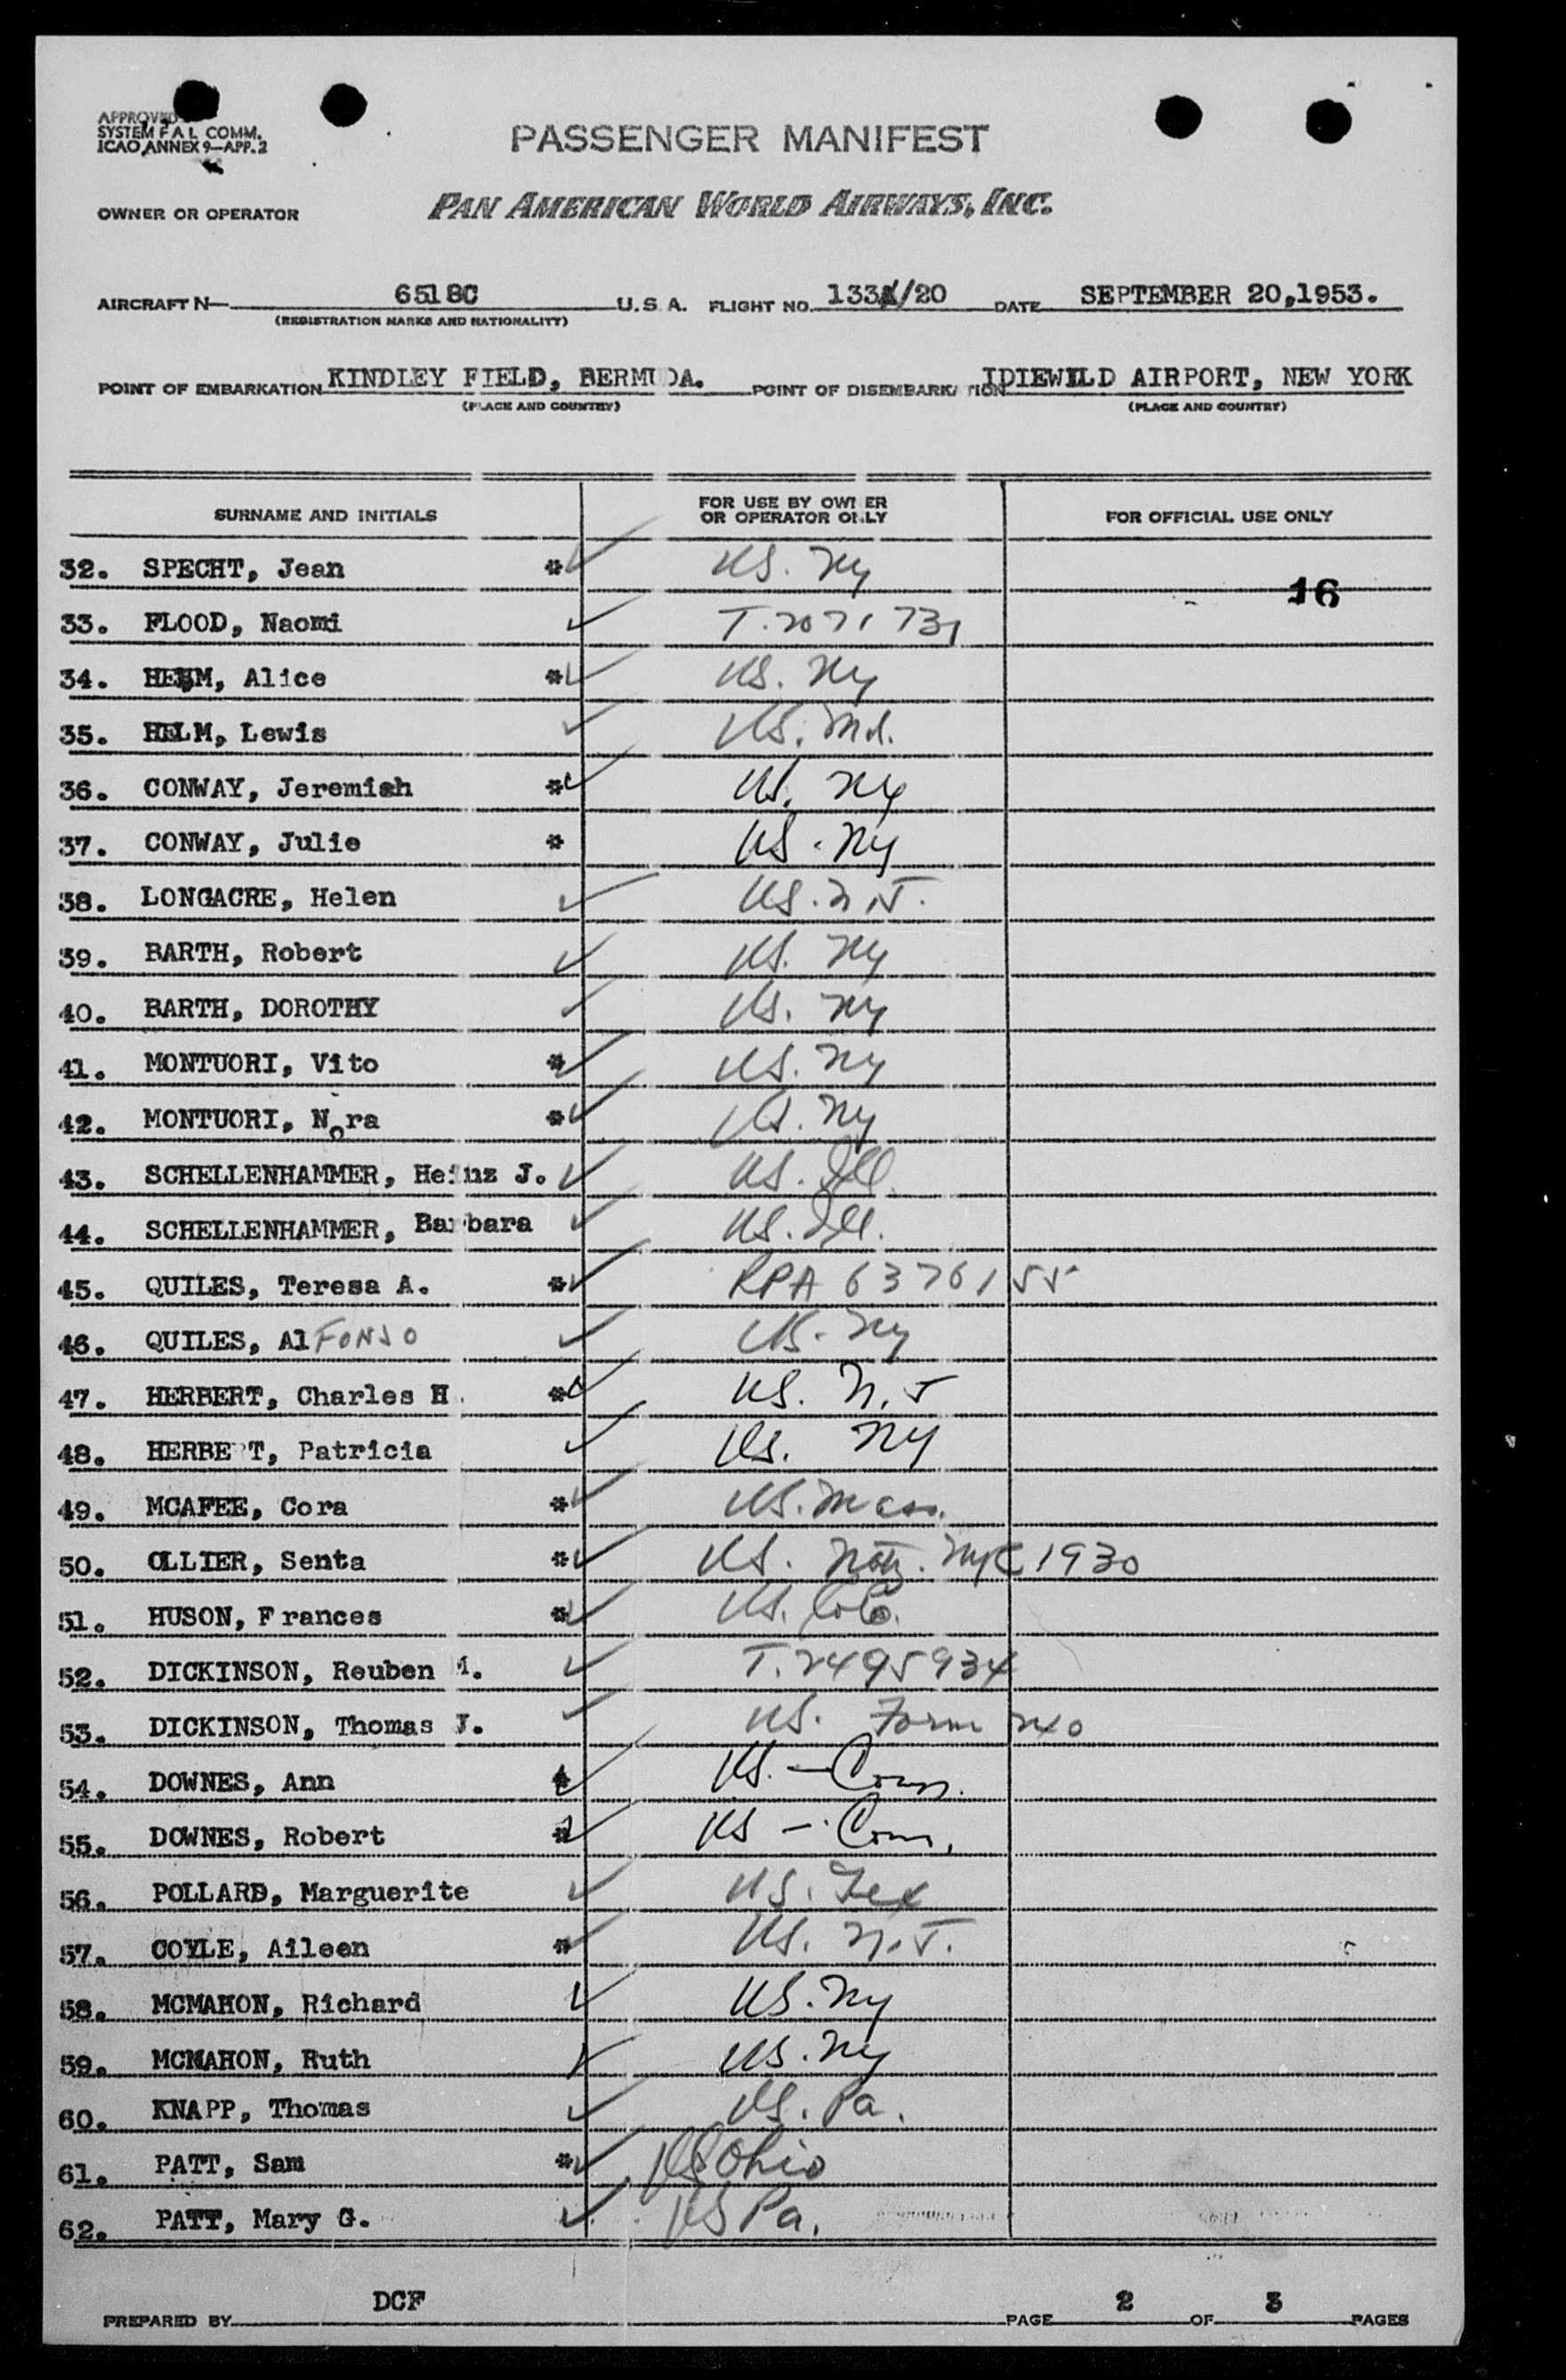 APPROVED
SYSTEM F A L COMM.
ICAO ANNEX 9—APP. 2
PASSENGER MANIFEST
OWNER OR OPERATOR PAN AMERICAN WORLD AIRWAYS, INC.
AIRCRAFT N— 6518C U.S.A. FLIGHT NO. 133/20 DATE SEPTEMBER 20,1953.
(REGISTRATION MARKS AND NATIONALITY)
POINT OF EMBARKATION KINDLEY FIELD, BERMUDA. POINT OF DISEMBARKATION IDIEWILD AIRPORT, NEW YORK
(PLACE AND COUNTRY) (PLACE AND COUNTRY)
SURNAME AND INITIALS FOR USE BY OWNER OR OPERATOR ONLY FOR OFFICIAL USE ONLY
32. SPECHT, Jean * US. Ny
16
33. FLOOD, Naomi T. 2071731
34. HELM, Alice * US. Ny
35. HELM, Lewis US. Md.
36. CONWAY, Jeremiah * US. Ny
37. CONWAY, Julie * US. Ny
38. LONGACRE, Helen US. N.J.
39. BARTH, Robert US. Ny
40. BARTH, DOROTHY US. Ny
41. MONTUORI, Vito * US. Ny
42. MONTUORI, Nora * US. Ny
43. SCHELLENHAMMER, Heinz J. US. Ill.
44. SCHELLENHAMMER, Barbara US. Ill.
45. QUILES, Teresa A. * RPA 6376155
46. QUILES, AlFONSO US. Ny
47. HERBERT, Charles H. * US. N.J
48. HERBERT, Patricia US. NY
49. MCAFEE, Cora * US. Mass.
50. OLLIER, Senta * US. Natz. NYC 1930
51. HUSON, Frances * US. Colo.
52. DICKINSON, Reuben M. T. 2495934
53. DICKINSON, Thomas J. US. Form 240
54. DOWNES, Ann * US. — Conn.
55. DOWNES, Robert * US — Conn.
56. POLLARD, Marguerite US. Tex
57. COYLE, Aileen * US. N.J.
58. MCMAHON, Richard US. Ny
59. MCMAHON, Ruth US. Ny
60. KNAPP, Thomas US. Pa.
61. PATT, Sam * US Ohio
62. PATT, Mary G. US Pa.
PREPARED BY DCF PAGE 2 OF 3 PAGES